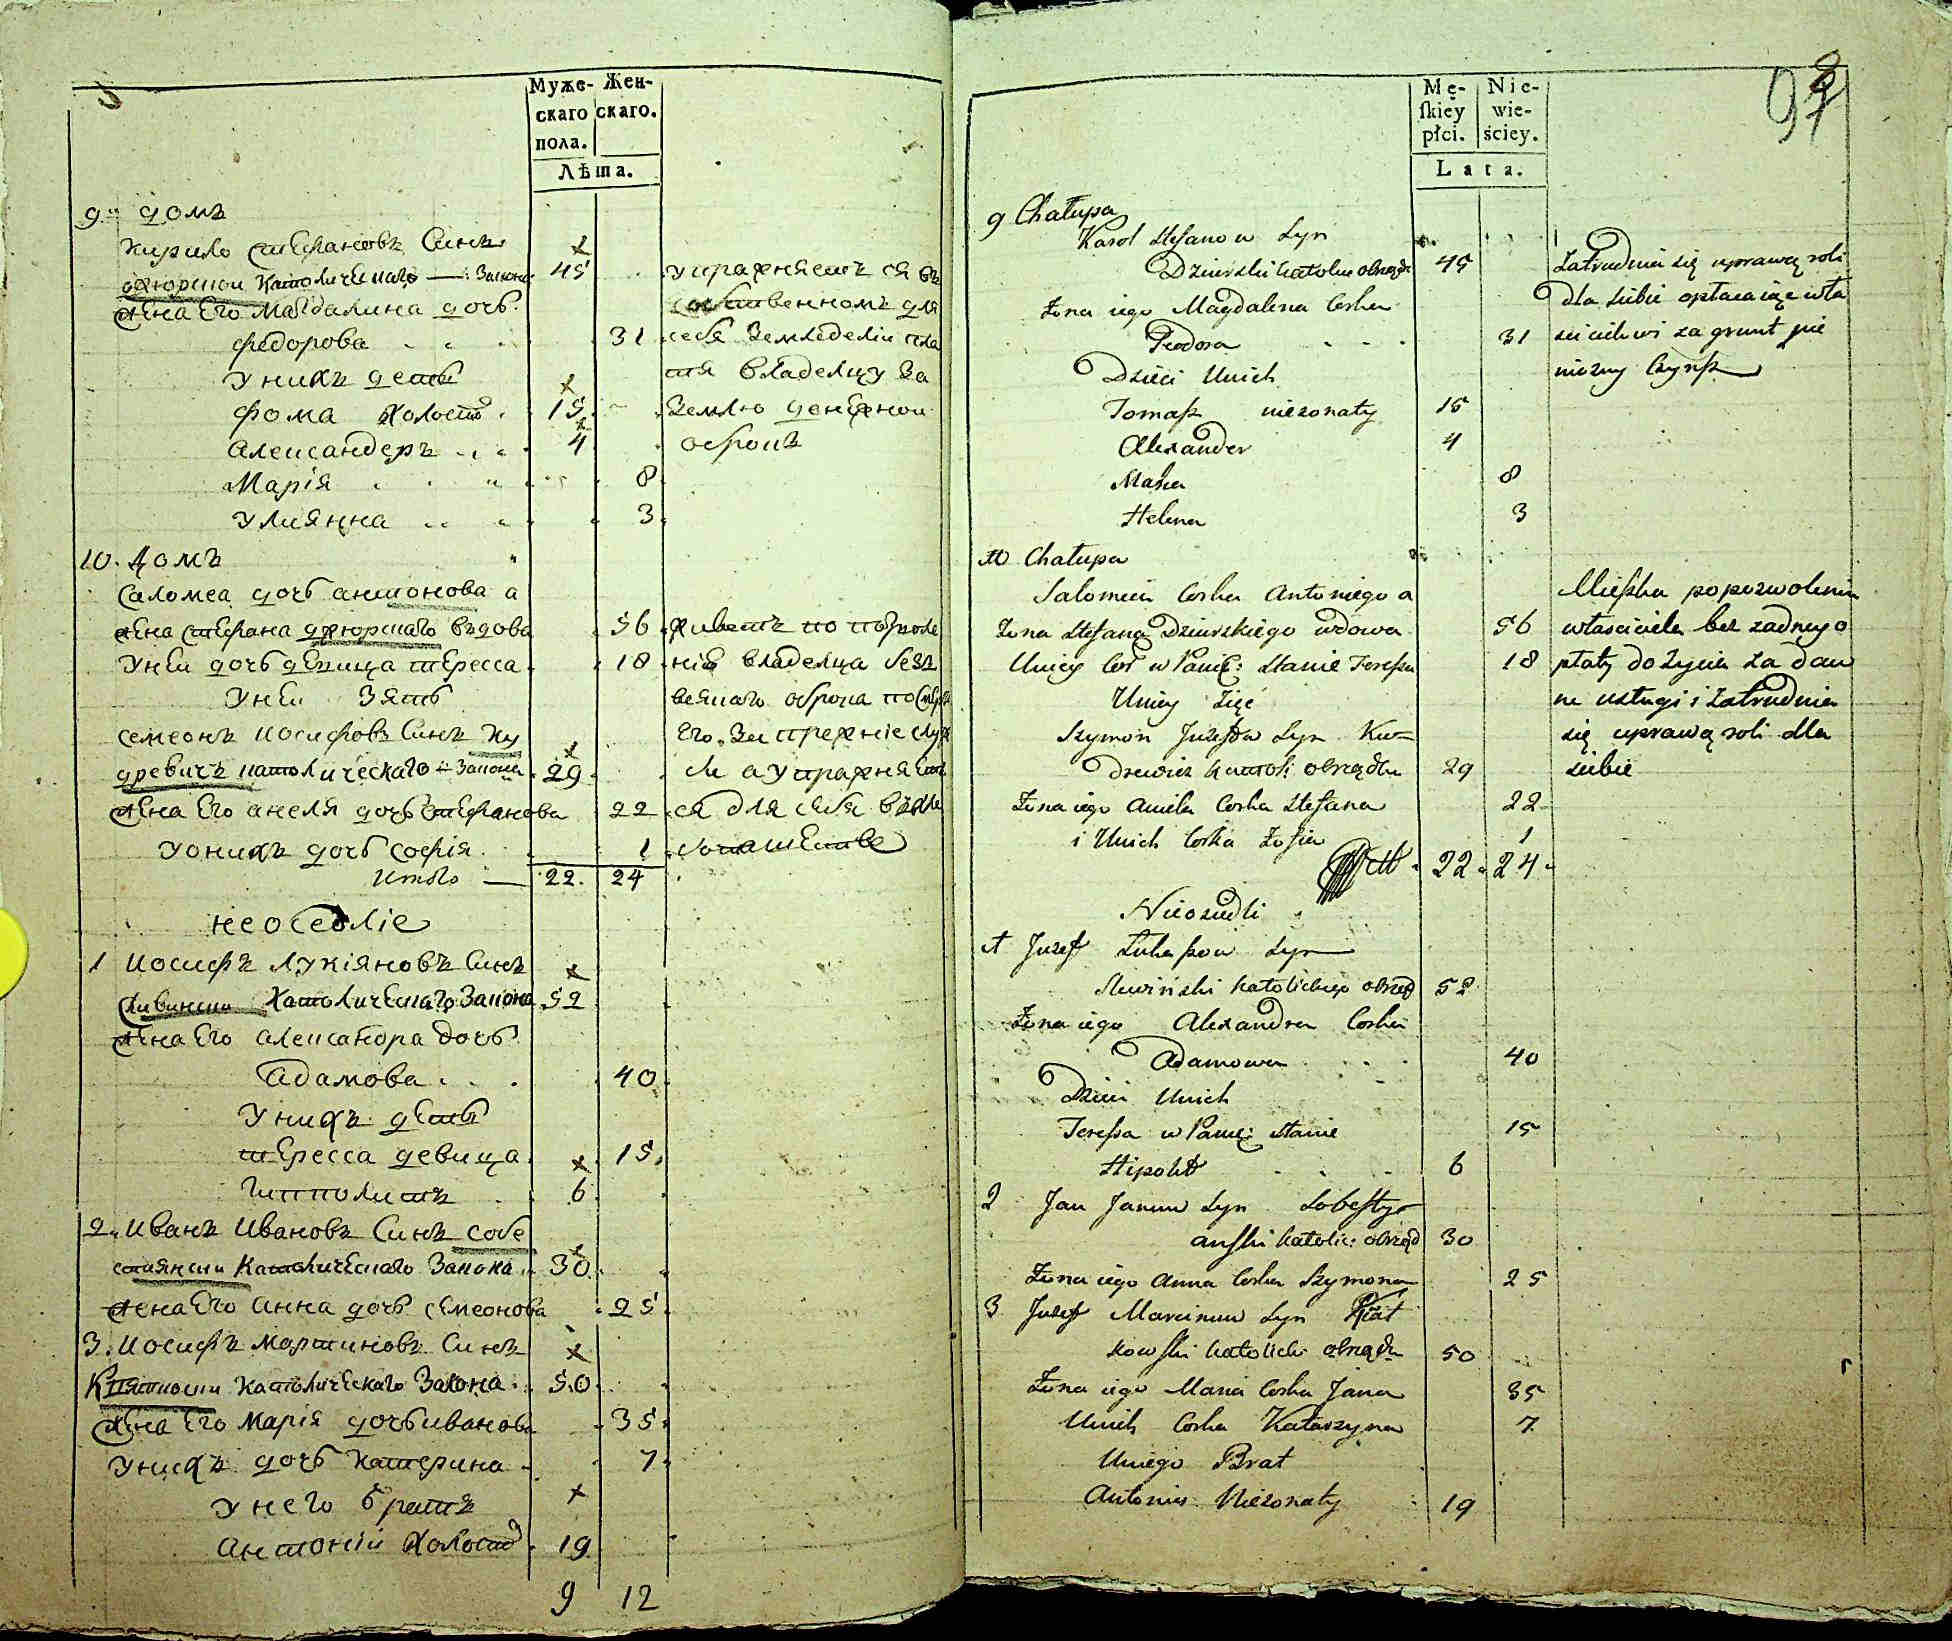 Муже-
скаго
пола.
Жен-
скаго.
Лѣта.
9. домъ
Кирило Стефановъ Синъ
Католическаго Закона 45
Жена Его Магдалина дочъ
федорова 31
Уникъ дети
Фома Холостъ 15
Александеръ 4
Марія 8
Улиянна 3
упражняетъ ся въ
собственномъ для
себя Земледелiи пла
тя владелцу За
Землю денежнои
оброкъ
10. Домъ
Саломеа дочъ антонова а
жена Стефана вдова 56
Унеи дочъ девица тересса 18
Унеи Зять
Семеонъ иосифовъ Синъ Ку
древичъ католическаго Закона 29
жена Его анеля дочъ Стефанова 22
Уоникъ дочъ Софія 1
Итого 22. 24
живетъ по позволе
нiю владелца безъ
оброка по
Его
ли а упражняетъ
ся для себя въ
неоседліе
1 иосифъ Лукіяновъ Синъ
Сливинскии Католическаго Закона 52
Жена Его александра дочъ
адамова 40
Уникъ дети
тересса девица 15
Гипполитъ 6
2. иванъ ивановъ Синъ собе
стиянскии Католическаго Закона 30
жена Его анна дочъ семеонова 25
3. иосифъ мартиновъ Синъ
Католическаго Закона 50
Жена Его Марія дочъ иванова 35
Уникъ дочъ катерина 7
У него братъ
антонiи Холостъ 19
9 12
Mę-
ſkiey
płci.
Nie-
wie-
ściey.
Lata.
97
9 Chałupa
Karol Stefanow Syn
Dziurski katolic obrządk 45
Żona iego Magdalena Corka
Teodora 31
Dzieci Unich
Tomaſz nieżonaty 15
Alexander 4
Maria 8
Helena 3
Zatrudnia się uprawą roli
dla siebie opłacaiąc wła
scicielowi za grunt pie
niężny Czynſz
10 Chałupa
Salomeia Corka Antoniego a
Żona Stefana Dziurskiego wdowa 56
Uniey Cor w Panię: Stanie Tereſsa 18
Uniey Zięć
Szymon Juzefow Syn Ku-
drewicz katoli obrządku 29
Żona iego Aniela Corka Stefana 22
i Unich Corka Zofia 1
22 24
Mieſzka po pozwoleniu
właściciela bez żadnego
płaty do życia za daw
ne usługi i zatrudnia
się uprawą roli dla
siebie
Nieosiedli
1 Juzef Łukaſzow Syn
Sliwiński katolickiego obrząd 52
Żona iego Alexandra Corka
Adamowa 40
Dzieci Unich
Tereſsa w Panię: Stanie 15
Hipolit 6
2 Jan Janow Syn Sobeſty-
anſki katolic: obrząd 30
Żona iego Anna Corka Szymona 25
3 Juzef Marcinow Syn Kwiat
kowſki katolick: obrządku 50
Żona iego Maria Corka Jana 35
Unich Corka Katarzyna 7
Uniego Brat
Antoni Nieżonaty 19